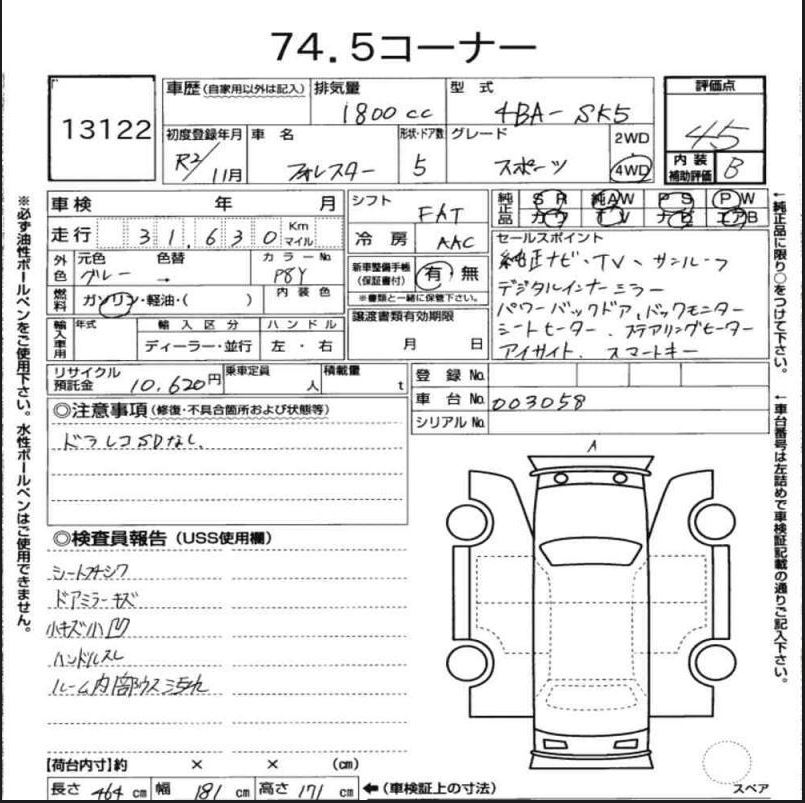 74.5コーナー
13122
車歴 (自家用以外は記入)
排気量
1800cc
型式
4BA-SK5
評価点
4.5
初度登録年月
R2/11月
車名
フォレスター
形状・ドア数
5
グレード
スポーツ
2WD
4WD
内装
補助評価
B
車検 年 月
走行 31,630 Km
マイル
外色
元色
グレー
色替
→
カラーNo
P8Y
燃料
ガソリン・軽油・( )
内装色
輸入車用
年式
輸入区分
ディーラー・並行
ハンドル
左・右
シフト
FAT
冷房
AAC
新車整備手帳
(保証書付)
有 無
※書類と一緒に保管下さい。
譲渡書類有効期限
月 日
純正品
SR 純AW PS PW
カワ TV ナビ エアB
セールスポイント
純正ナビ・TV、サンルーフ
デジタルインナーミラー
パワーバックドア、バックモニター
シートヒーター、ステアリングヒーター
アイサイト、スマートキー
リサイクル
預託金 10,620円
乗車定員
人
積載量
t
登録No.
車台No. 003058
シリアルNo.
◎注意事項(修復・不具合箇所および状態等)
ドラレコSDなし、
◎検査員報告(USS使用欄)
ドアミラーキズ
小キズ小凹
ハンドルスレ
ルーム内1部ウスヨゴレ
A
【荷台内寸】約 × × (cm)
長さ 464 cm 幅 181 cm 高さ 171 cm ←(車検証上の寸法)
スペア
※必ず油性ボールペンをご使用下さい。水性ボールペンはご使用できません。
←純正品に限り○をつけて下さい。
←車台番号は左詰めで車検証記載の通りご記入下さい。